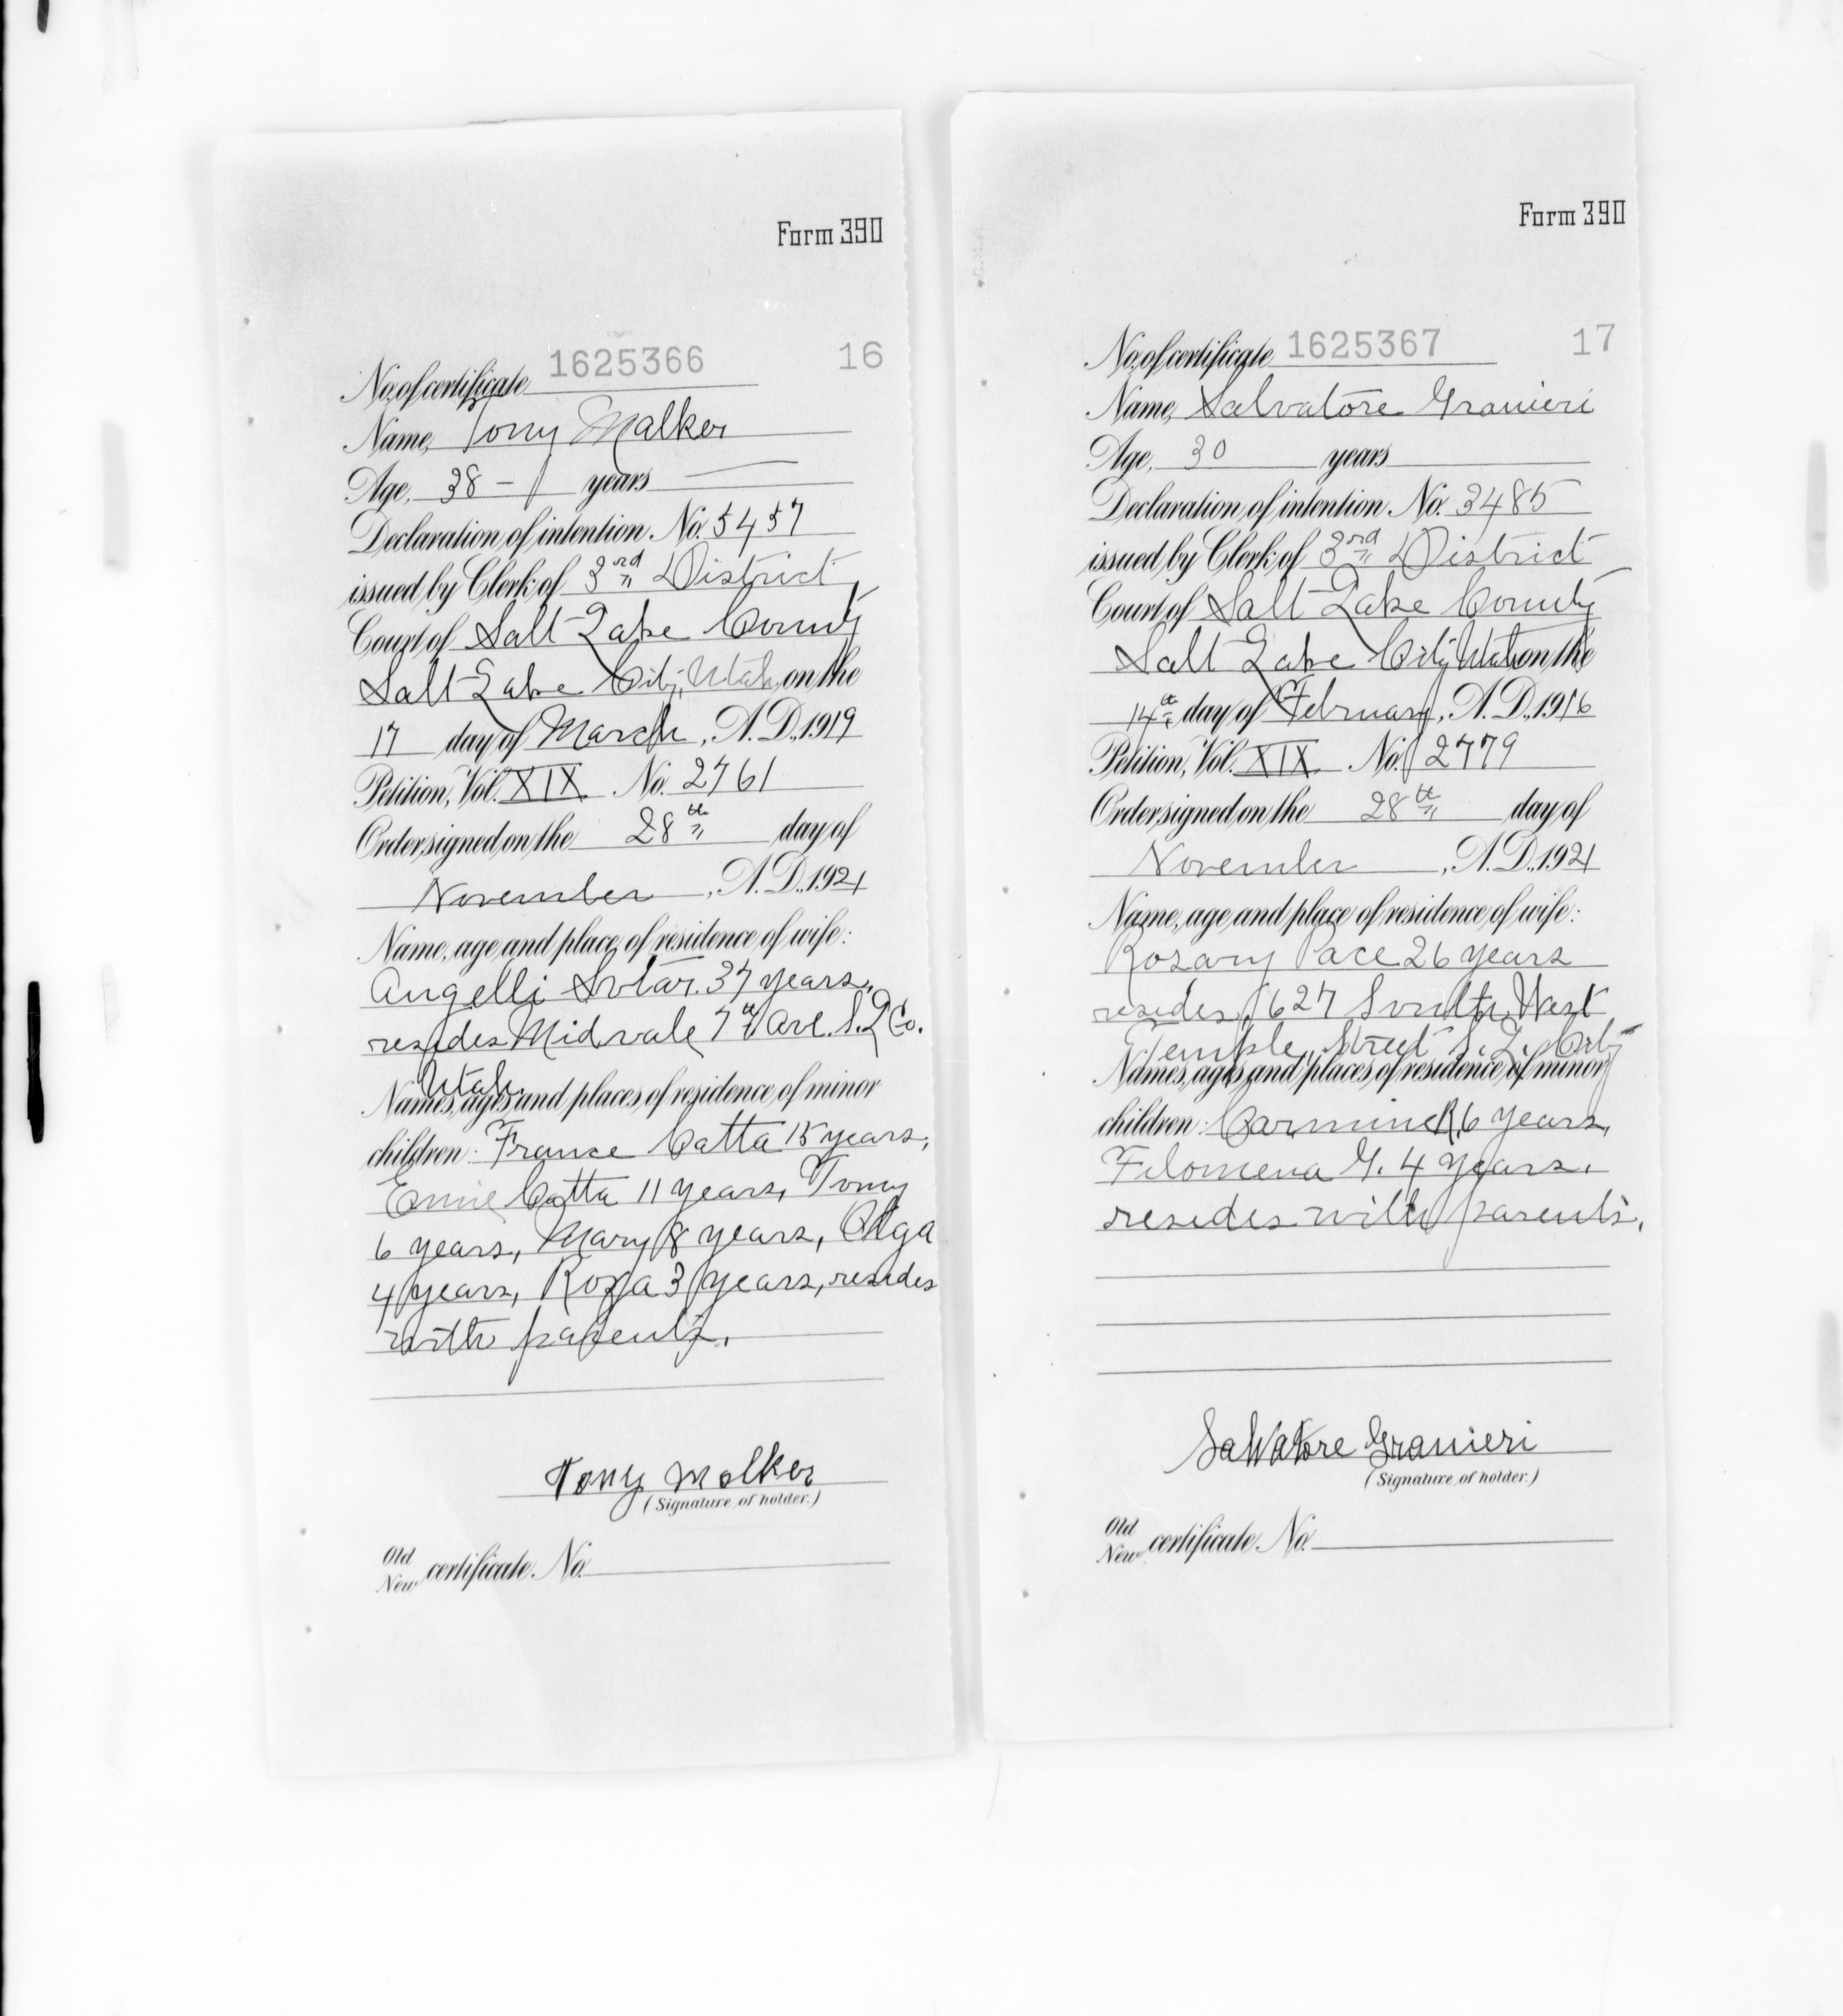 Form 390
No. of certificate 1625366 16
Name, Tony Malker
Age, 38 – years
Declaration of intention No. 5457
issued by Clerk of 3rd District
Court of Salt Lake County
Salt Lake City, Utah on the
17 day of March, A. D., 1919
Petition, Vol. XIX No. 2761
Order signed on the 28th day of
November, A. D., 1921
Name, age and place of residence of wife:
Angelli 37 years,
resides Midvale 7th Ave. S. L. Co.
Utah
Names, ages and places of residence of minor
children: France Catta 15 years,
Catta 11 years, Tony
6 years, Mary 8 years, Olga
4 years, Roza 3 years, resides
with parents.
Tony Malker
(Signature of holder.)
Old
New certificate No.
Form 390
No. of certificate 1625367 17
Name, Salvatore Granieri
Age, 30 years
Declaration of intention No. 3485
issued by Clerk of 3rd District
Court of Salt Lake County
Salt Lake City Utah on the
14th day of February, A. D., 1916
Petition, Vol. XIX No. 2779
Order signed on the 28th day of
November, A. D., 1921
Name, age and place of residence of wife:
Rosary Pace 26 years
resides 1627 South West
Temple Street S. L. City
Names, ages and places of residence of minor
children: Carmine 6 years,
Filomena G. 4 years.
resides with parents.
Salvatore Granieri
(Signature of holder.)
Old
New certificate No.